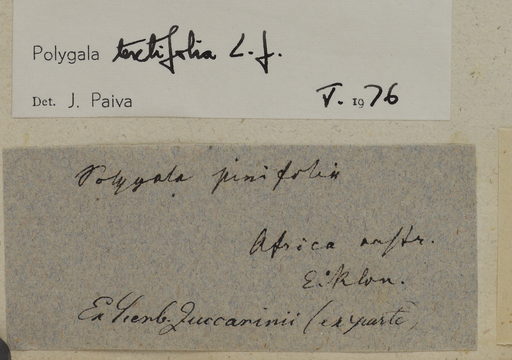 Polygala teretifolia L. f.
Det. J. Paiva V. 1976
Polygala pinifolia
Africa austr.
Eiklon.
Ex Herb. Zuccarinii (ex parte)